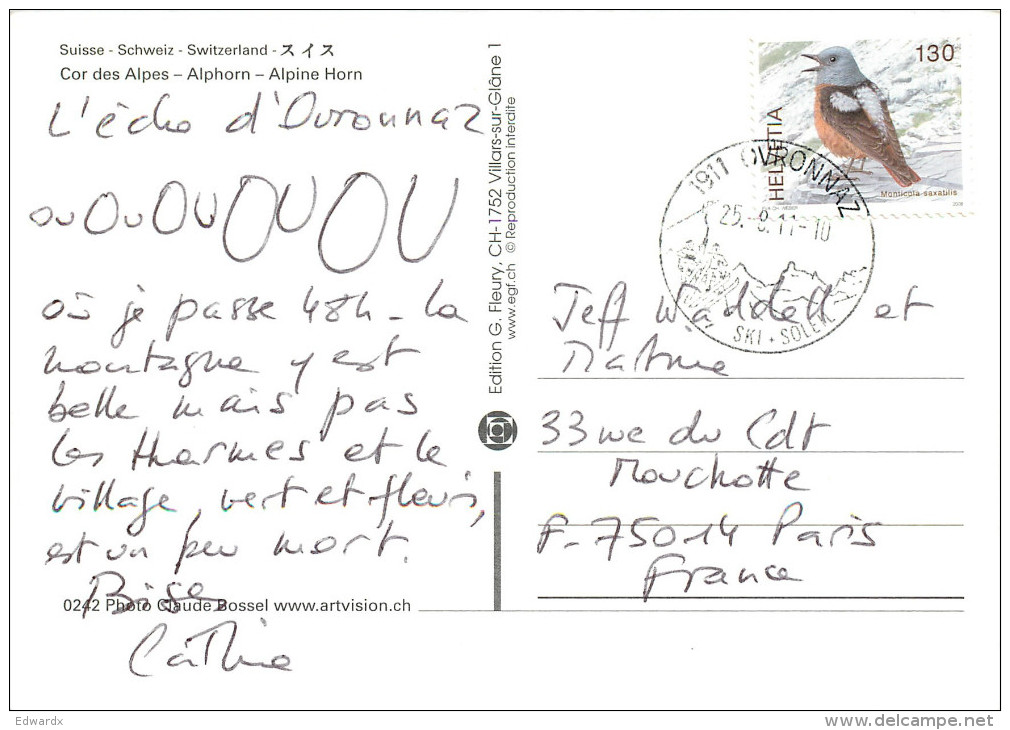 Suisse - Schweiz - Switzerland - スイス
Cor des Alpes – Alphorn – Alpine Horn
L'écho d'Ovronnaz
ou Ou OU OU OU
où je passe 48h - La
montagne y est
belle mais pas
les thermes et le
village, vert et fleuri,
est un peu mort.
Bises
0242 Photo Claude Bossel www.artvision.ch
Edition G. Fleury, CH-1752 Villars-sur-Glâne 1
www.egf.ch © Reproduction interdite
130
HELVETIA
Monticola saxatilis
1911 OVRONNAZ
25.-8.11-10
SKI + SOLEIL
Jeff Waddell et
33 rue du Cdt
Mouchotte
F-75014 Paris
France
Edwardx
delcampe.net